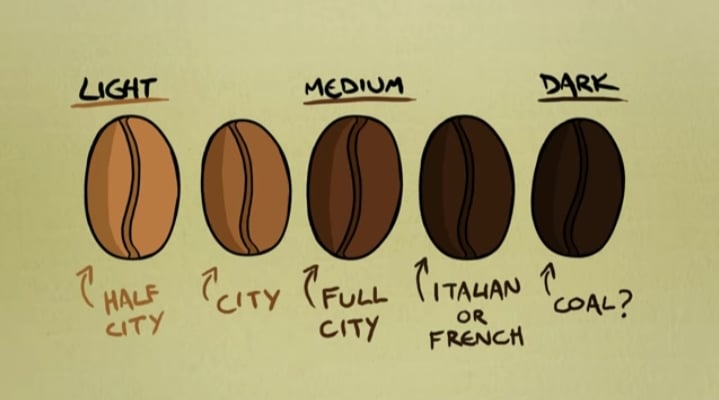 LIGHT
MEDIUM
DARK
HALF
CITY
CITY
FULL
CITY
ITALIAN
OR
FRENCH
COAL?